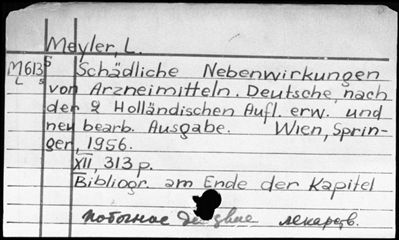 Meyler, L.
M613 s Schädliche Nebenwirkungen
L s von Arzneimitteln. Deutsche, nach
der 2 Holländischen Aufl. erw. und
neu bearb. Ausgabe. Wien, Sprin-
ger, 1956.
XII, 313 p.
Bibliogr. am Ende der Kapitel
побочное действие лекарств.